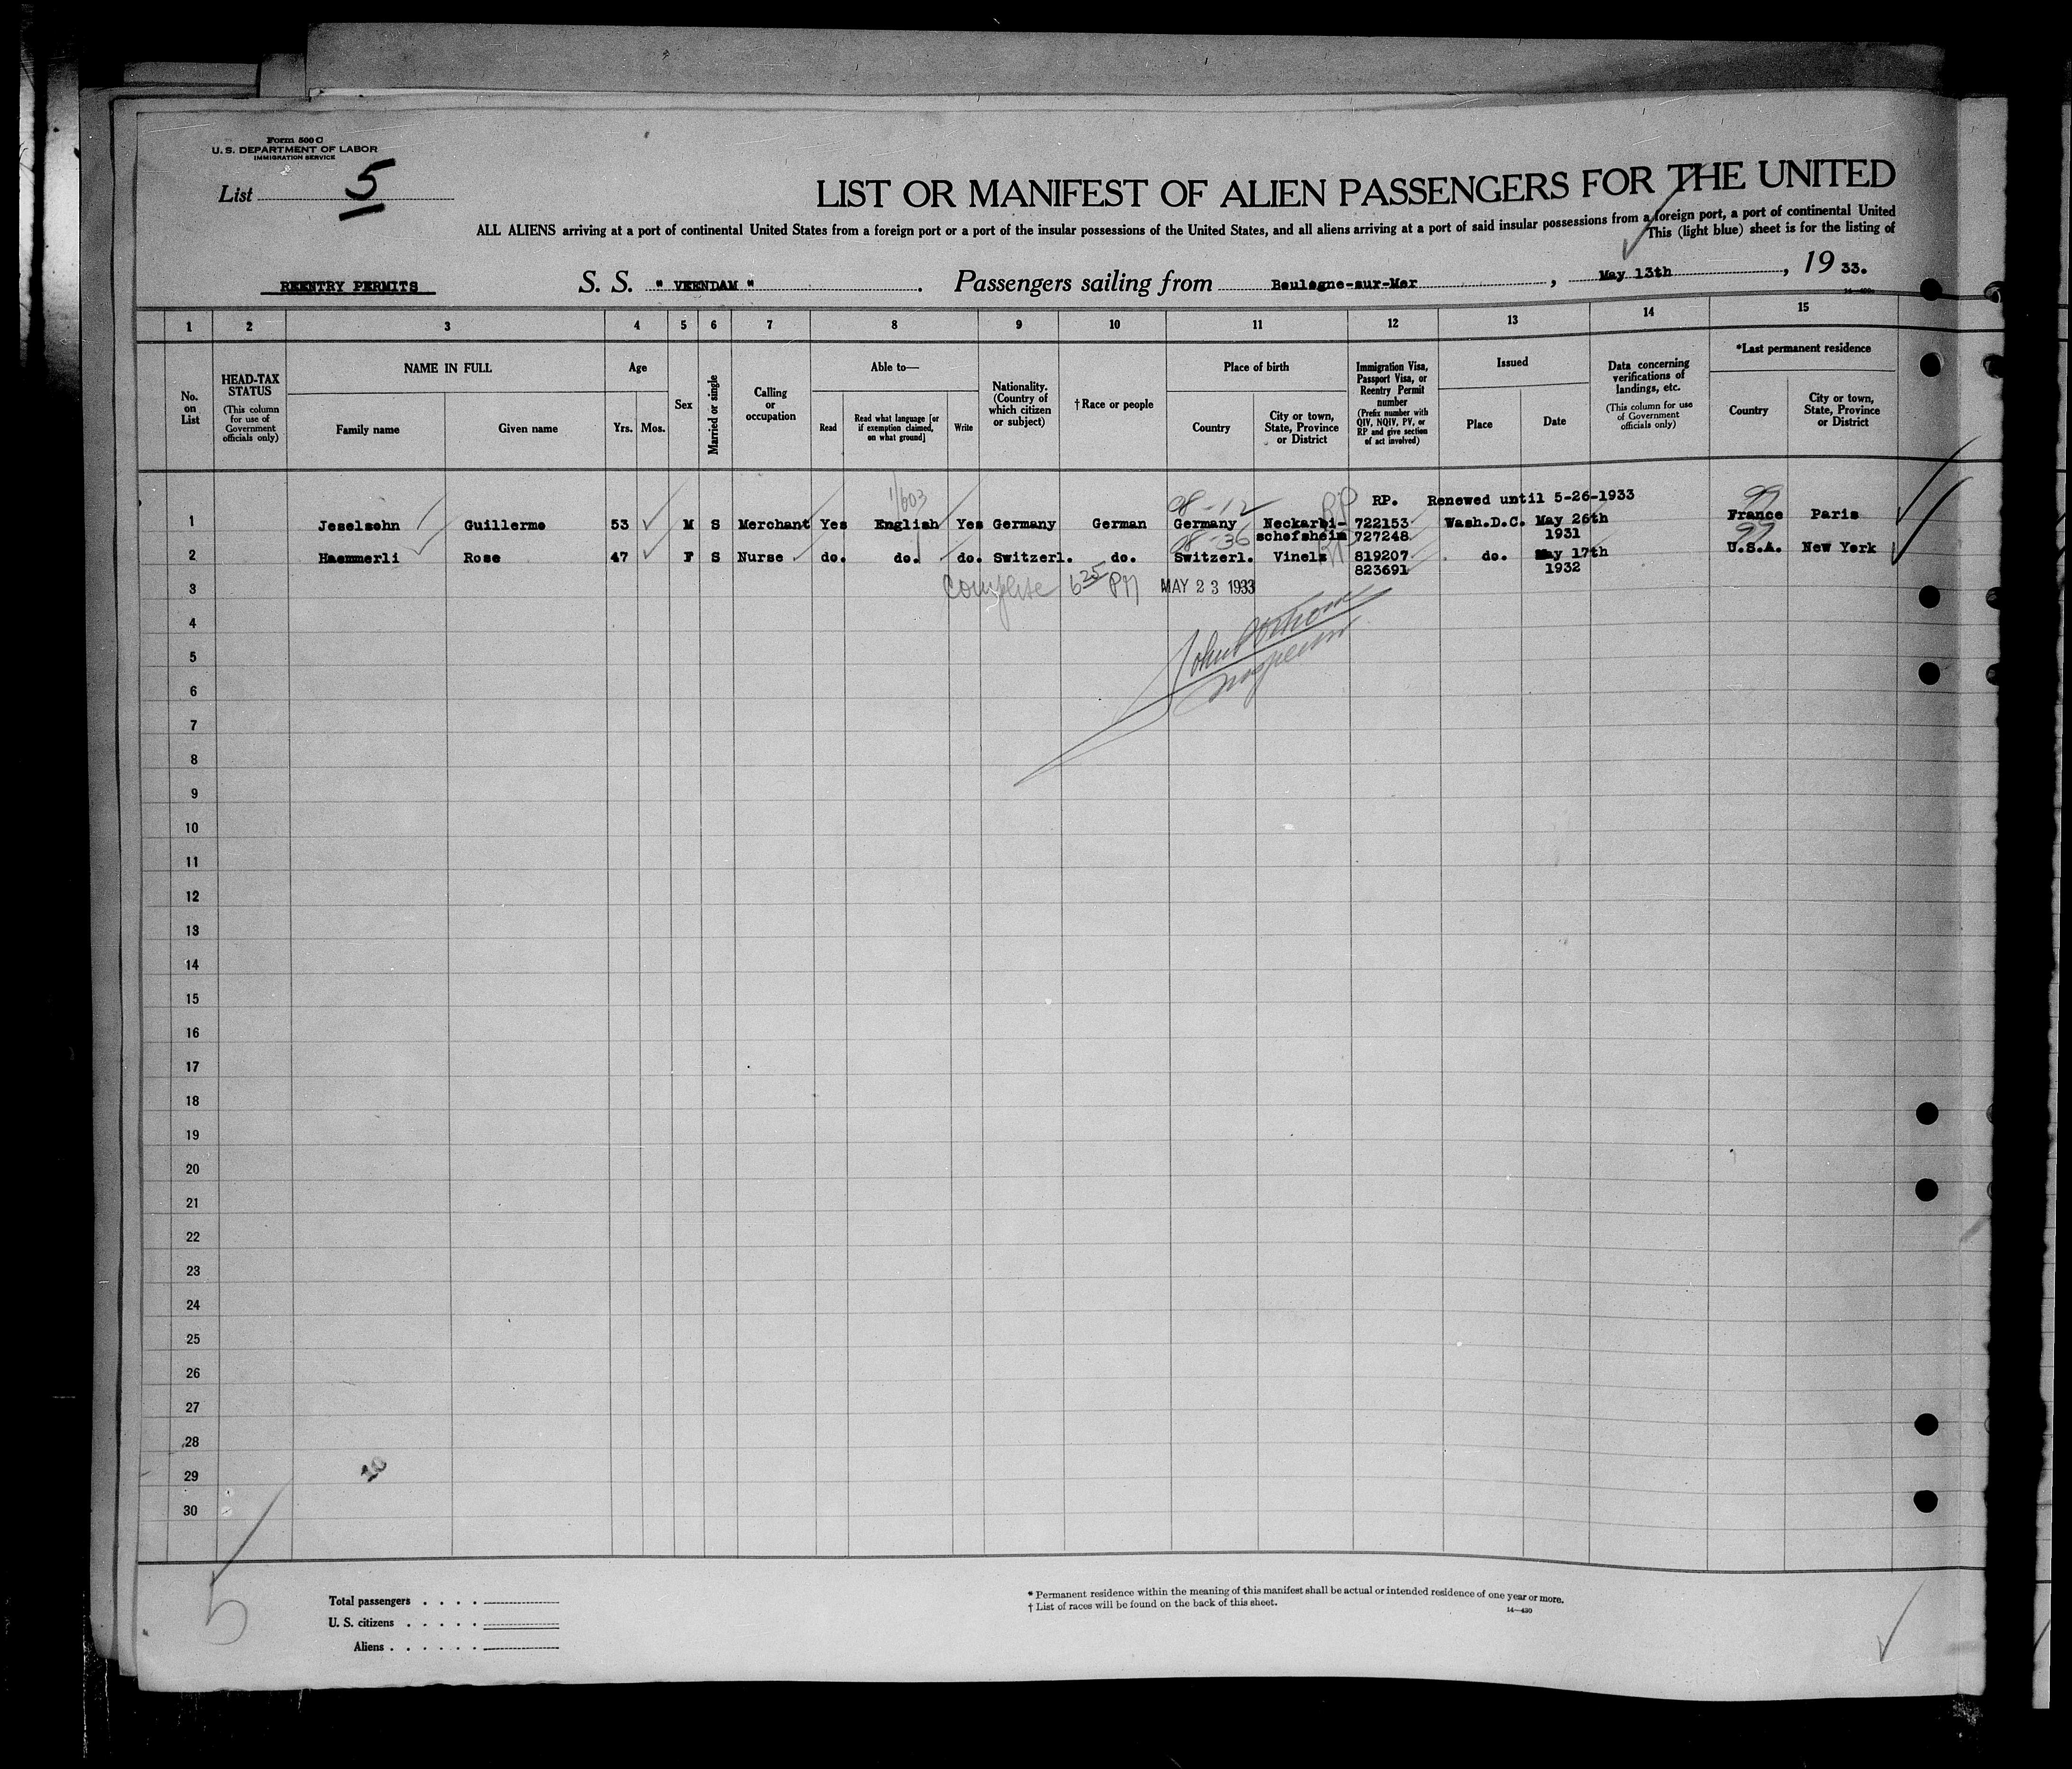 Form 500 C
U. S. DEPARTMENT OF LABOR
IMMIGRATION SERVICE
List 5
LIST OR MANIFEST OF ALIEN PASSENGERS FOR THE UNITED
ALL ALIENS arriving at a port of continental United States from a foreign port or a port of the insular possessions of the United States, and all aliens arriving at a port of said insular possessions from a foreign port, a port of continental United
This (light blue) sheet is for the listing of
REENTRY PERMITS S. S. " VEENDAM " . Passengers sailing from Boulogne-sur-Mer , May 13th , 19 33.
1 2 3 4 5 6 7 8 9 10 11 12 13 14 15
No. on List
HEAD-TAX STATUS
(This column for use of Government officials only)
NAME IN FULL
Family name Given name
Age
Yrs. Mos.
Sex
Married or single
Calling or occupation
Able to—
Read
Read what language [or if exemption claimed, on what ground]
Write
Nationality. (Country of which citizen or subject)
†Race or people
Place of birth
Country
City or town, State, Province or District
Immigration Visa, Passport Visa, or Reentry Permit number
(Prefix number with QIV, NQIV, PV, or RP and give section of act involved)
Issued
Place Date
Data concerning verifications of landings, etc.
(This column for use of Government officials only)
*Last permanent residence
Country
City or town, State, Province or District
1/603
08-12 RP RP. Renewed until 5-26-1933 99
1 Jeselsohn Guillermo 53 M S Merchant Yes English Yes Germany German Germany Neckarbi- 722153 Wash.D.C. May 26th France Paris
08-36 schofsheim 727248 1931 99
2 Haemmerli Rose 47 F S Nurse do. do. do. Switzerl. do. Switzerl. Vinelz 819207 do. May 17th U.S.A. New York
823691 1932
3 Complete 6 25 PM MAY 23 1933
4
5
Inspector
6
7
8
9
10
11
12
13
14
15
16
17
18
19
20
21
22
23
24
25
26
27
28
29
30
5
Total passengers . . . .
U. S. citizens . . . . .
Aliens . . . . . .
* Permanent residence within the meaning of this manifest shall be actual or intended residence of one year or more.
† List of races will be found on the back of this sheet.
14—430